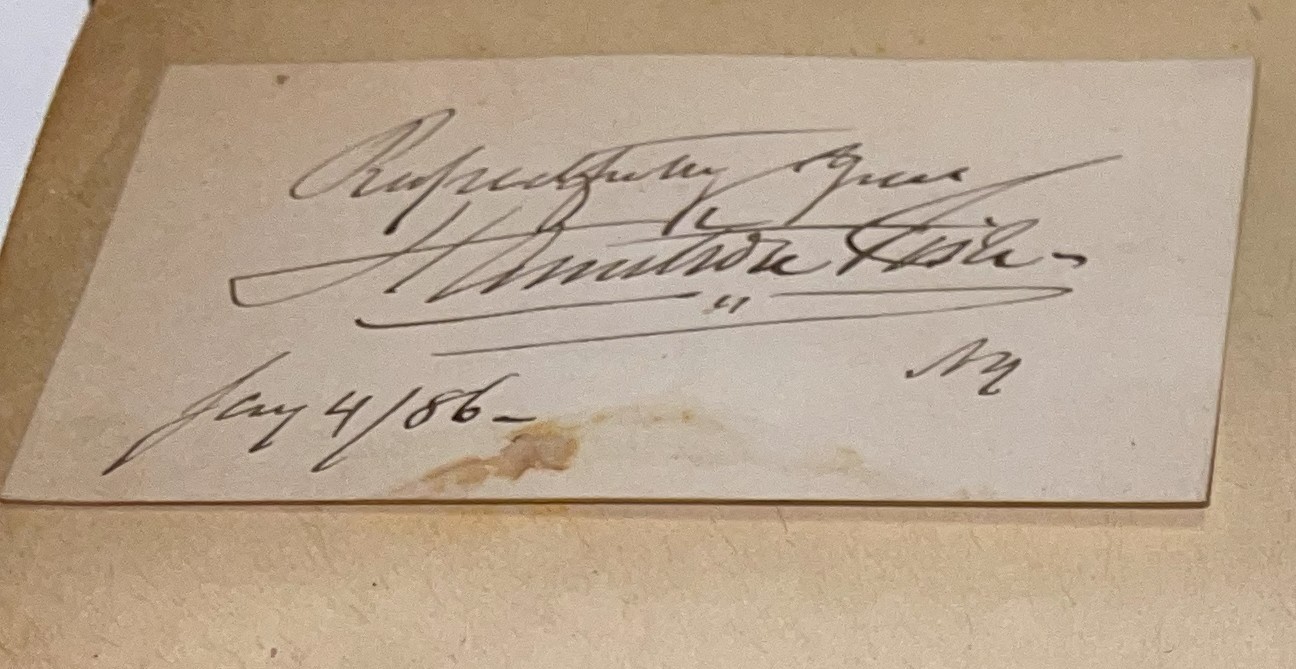 Respectfully Yours
Hamilton Fish -
NY
Jany 4/86 -